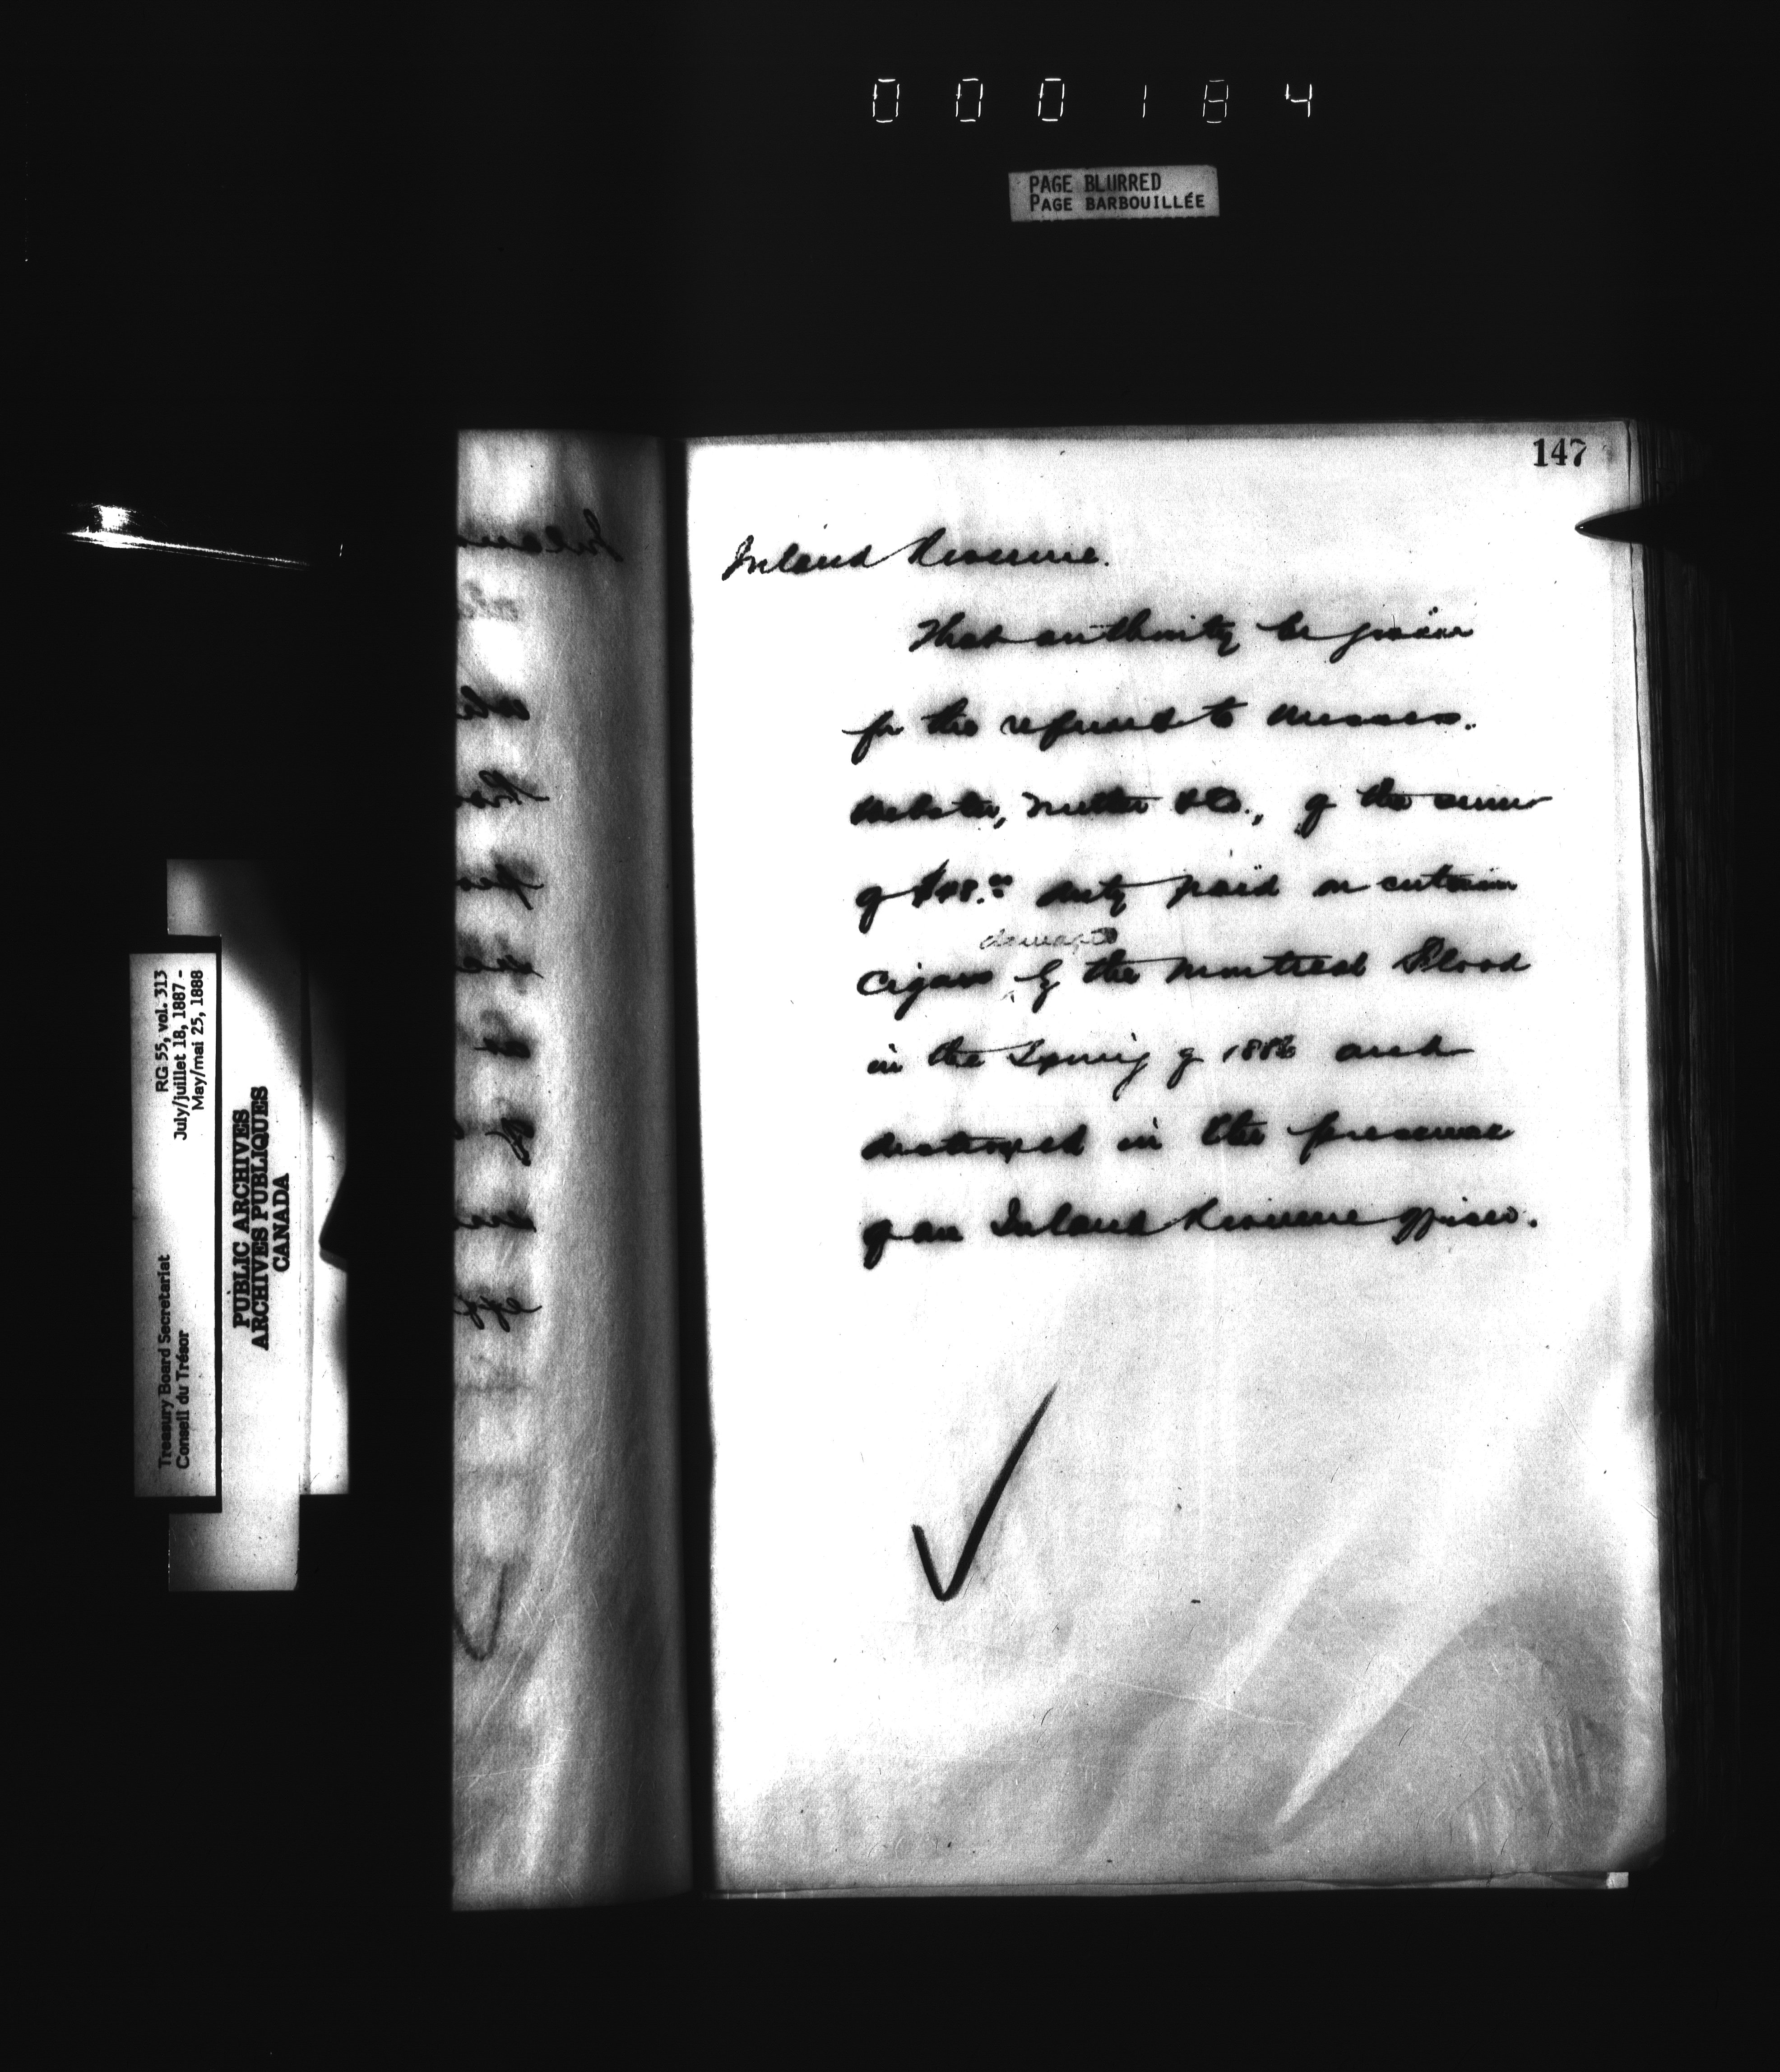 000184
PAGE BLURRED
PAGE BARBOUILLÉE
147
Inland Revenue.
That authority be given
for the refund to Messrs.
Webster, Nutter & Co., of the sum
of $48.00 duty paid on certain
damaged
cigars by the Montreal Flood
in the Spring of 1886 and
destroyed in the presence
of an Inland Revenue officer.
RG 55, vol. 313
July/juillet 18, 1887 -
May/mai 25, 1888
Treasury Board Secretariat
Conseil du Trésor
PUBLIC ARCHIVES
ARCHIVES PUBLIQUES
CANADA